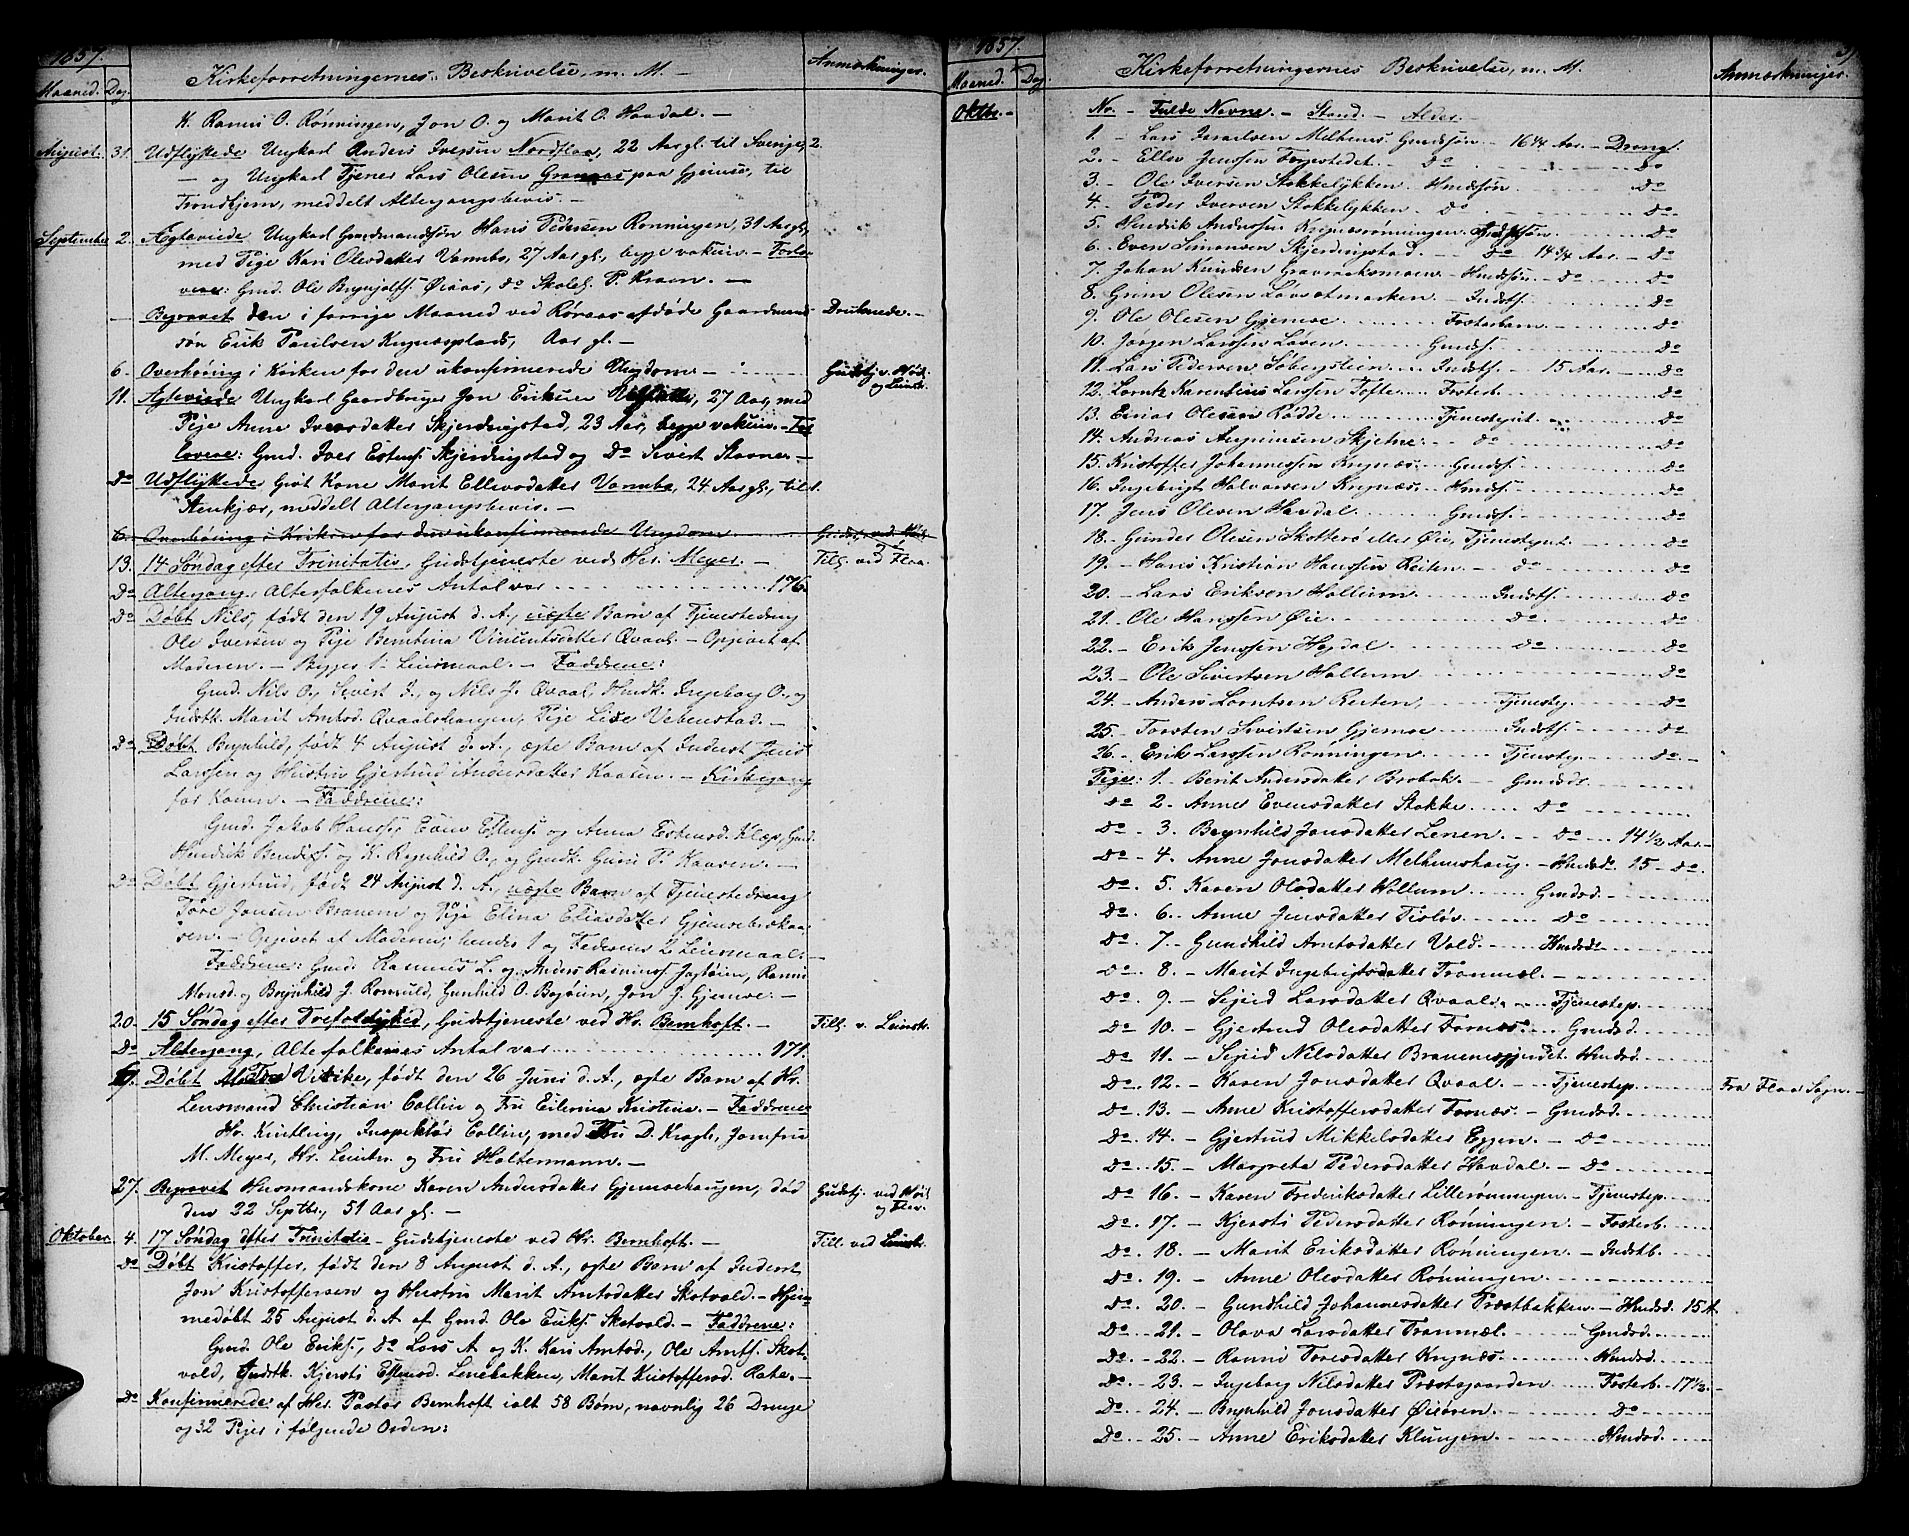 1857.
Maaned. Dag. Kirkeforretningernes Beskrivelse, m. M. Anmærkninger.
K. Ranni O. Rønningen, Jon O. og Marit O. Havdal. —
August. 31. Udflyttede Ungkarl Anders Iversen Nordflaa, 22 Aar gl. til Sverige, 2.
— og Ungkarl Tjener Lars Olesen paa Gjemse, til
Trondhjem, meddelt Altergangsbevis. —
September 2. Ægteviede Ungkarl Gaardmandsøn Hans Pedersen Rønningen, 31 Aar gl,
med Pige Kari Olesdatter Vambo, 27 Aar gl., begge vakcin. — Forlo-
vere: Gmd. Ole Brynjolfs. Øiaas, do Skolel. P. Kraem. —
— Begravet den i forrige Maaned ved Røraas afdøde Gaardmand- Druknede. —
søn Erik Paulsen Kregnæsplads, Aar gl. —
6. Overhøring i Kirken for den ukonfirmerede Ungdom — Gudstj. v. Høil. og Leinstr.
11. Ægteviede Ungkarl Gaardbruger Jon Eriksen 27 Aar, med
Pige Anne Iversdatter Skjerdingstad, 23 Aar, begge vakcin. — For-
lovere: Gmd. Iver Estens. Skjerdingstad og Do Sivert Stavne. —
Do Udflyttede Gift Kone Marit Ellevsdatter Vambo, 24 Aar gl., til 1.
Stenkjær, meddelt Altergangsbevis. —
6. Overhøring i Kirken for den ukonfirmerede Ungdom Gudstj. ved Høil.
13. 14 Søndag efter Trinitatis, Gudstjeneste ved Hr. Meyer. — Till. ved Flaa.
Do Altergang, Alterfolkenes Antal var 176.
Do Døbt Nils, født den 19 August d. A., uægte Barn af Tjenestedreng
Ole Iversen og Pige Berntina Vincentsdatter Qvaal. — Opgivet af
Moderen. — Begges 1. Leiermaal. — Faddrene:
Gmd. Nils O., Sivert J., og Nils J. Qvaal, Hmdk. Ingeborg O., og
Indstk. Marit Arntsd. Qvaalshaugen, Pige Lise Vebenstad. —
Do Døbt Brynhild, født 4 August d. A., ægte Barn af Inderst Jens
Larssen og Hustru Gjertrud Andersdatter Kaasen. — Kirkegang
for Konen. — Faddrene:
Gmd. Jakob Hanss., Even Estens. og Anna Estensd. Klæp, Gmd.
Hendrik Bendixs. og K. Ragnhild O., og Gmdk. Guru P. Kaasen. —
Do Døbt Gjertrud, født 24 August d. A., uægte Barn af Tjenestedreng
Tore Jonsen Brauem og Pige Elina Eliasdatter Gjemsebrækaa-
sen. — Opgivet af Moderen; hendes 1 og Faderens 2 Leiermaal. —
Faddrene: Gmd. Rasmus L. og Anders Rasmuss. Jagtøien, Ranni
Monsd. og Brynhild J. Romuld, Gunhild O. Bejøien, Jon J. Gjemse. —
20. 15 Søndag efter Trefoldighed, Gudstjeneste ved Hr. Bernhoft. — Till. v. Leinstr.
Do Altergang, Alterfolkenes Antal var 171.
Døbt Vibike, født den 26 Juni d. A., ægte Barn af Hr.
Lensmand Christian Collin og Fru Eilerina Kristina. — Faddrene
Hr. Kintling, Inspektør Collin, med Fru D. Kragh, Jomfru
M. Meyer, Hr. Leutn. og Fru Holtermann. —
27. Begravet Husmandskone Karen Andersdatter Gjemsehaugen, død Gudstj. ved Høil. og Flaa.
den 22 Septbr, 51 Aar gl. —
Oktober 4. 17 Søndag efter Trinitatis — Gudstjeneste ved Hr. Bernhoft. — Till. ved Leinstr.
Do Døbt Kristoffer, født den 8 August d. A., ægte Barn af Inderst
Jon Kristoffersen og Hustru Marit Arntsdatter Skotvold. — Hjem-
medøbt 25 August d. A. af Gmd. Ole Eriks. Skotvold. — Faddrene:
Gmd. Ole Eriks., do Lars A. og K. Kari Arntsd., Ole Arnts. Skot-
vold, Indstk. Kjersti Estensd. Lenebakken, Marit Kristoffersd. Rate. —
Do Konfirmerede af Hr. Pastor Bernhoft ialt 58 Børn, navnlig 26 Drenge
og 32 Piger i følgende Orden:
1857.
Maaned. Dag. Kirkeforretningernes Beskrivelse, m. M. Anmærkninger.
Oktbr. — No. — Fulde Navne. — Stand. — Alder. —
1. — Lars Israelsen Melhuus Gmdssøn — 16 1/4 Aar. — Dreng.
2. — Ellev Jenssen Do Do
3. — Ole Iversen Stokkelykken. Hmdssøn Do
4. — Peder Iversen Stokkelykken. Do Do
5. Hendrik Anderssen Kregnæsrønningen. Do
6. — Even Simonsen Skjerdingstad. Do 14 3/4 Aar. — Do
7. Johan Knudsen Gravraaksmoen — Hmdssøn. — Do Do
8. Grim Olesen Løvsetmarken. — Indstf. Do
9. Ole Olesen Gjemse. Fosterbarn. — Do
10. Jørgen Larssen Løven. Gmdss. Do
11. Lars Pedersen Søbergsteien. Indstf. — 15 Aar. — Do
12. Lorntz Karensius Larssen Tofte. Fosterb. Do
13. Elias Olesen Rødde. Tjenestegut Do
14. Andreas Skjetne. Do Do
15. Kristoffer Johannessen Kregnæs. Gmdss. Do
16. Ingebrigt Halvorsen Kregnæs. Hmdss. Do
17. Jens Olesen Havdal. Gmdss. Do
18. — Gunder Olesen Skotterø eller Øie, Tjenestegut. Do
19. — Hans Kristian Hanssen Reiten. — Do Do
20. — Lars Eriksen Hollum. Indstf. Do
21. — Ole Hanssen Øie. Do Do
22. — Erik Jenssen Hejdal. Do Do
23. — Ole Sivertsen Hollum Do
24. — Anders Lorntsen Reiten, Tjenesteg. Do
25. — Torsten Sivertsen Gjemse Indstf. Do
26. — Erik Larssen Rønningen. Tjenesteg. Do
Pige: 1. — Berit Andersdatter Brobak. Gmdsd.
Do 2. — Anne Evensdatter Stokke. Do
Do 3. — Brynhild Jonsdatter Lenen. — Do 14 1/2 Aar. —
Do 4. — Anne Jonsdatter Melhuushaug. — Hmdsd. 15 — Do.
Do 5. — Karen Olesdatter Hollum Gmdsd.
Do 6. — Anne Jensdatter Tisløv. Do
Do 7. — Gundhild Arntsdatter Vold. Hmdsd.
Do 8. — Marit Ingebrigtsdatter Tranmæl. —
Do 9. — Sigrid Larsdatter Qvaal. Tjenestep.
Do 10. — Gjertrud Olesdatter Fornæs. Gmdsd.
Do 11. — Sigrid Nilsdatter Brauemsgjerdet. Hmdsd.
Do 12. — Karen Jonsdatter Qvaal. Tjenestep. Fra Flaa Sogn. —
Do 13. — Anne Kristoffersdatter Fornæs. — Gmdsd.
Do 14. — Gjertrud Mikkelsdatter Eggen. — Do
Do 15. — Margreta Pedersdatter Havdal. — Do
Do 16. — Karen Frederiksdatter Lillerønningen. — Tjenestep.
Do 17. — Kjersti Pedersdatter Rønningen. — Fosterb.
Do 18. — Marit Eriksdatter Rønningen. — Indstb.
Do 19. — Anne Olesdatter Rønningen
Do 20. — Gundhild Johannesdatter Præstbakken. — Hmdsd. 15 A.
Do 21. — Olava Larsdatter Tranmæl. Gmdsd.
Do 22. — Ranni Toresdatter Kregnæs. Hmdsd.
Do 23. — Ingeborg Nilsdatter Præstgaarden. Fosterb. — 17 1/2. —
Do 24. — Brynhild Jonsdatter Øiesen. Do
Do 25. — Anne Eriksdatter Klungen. Hmdsd.